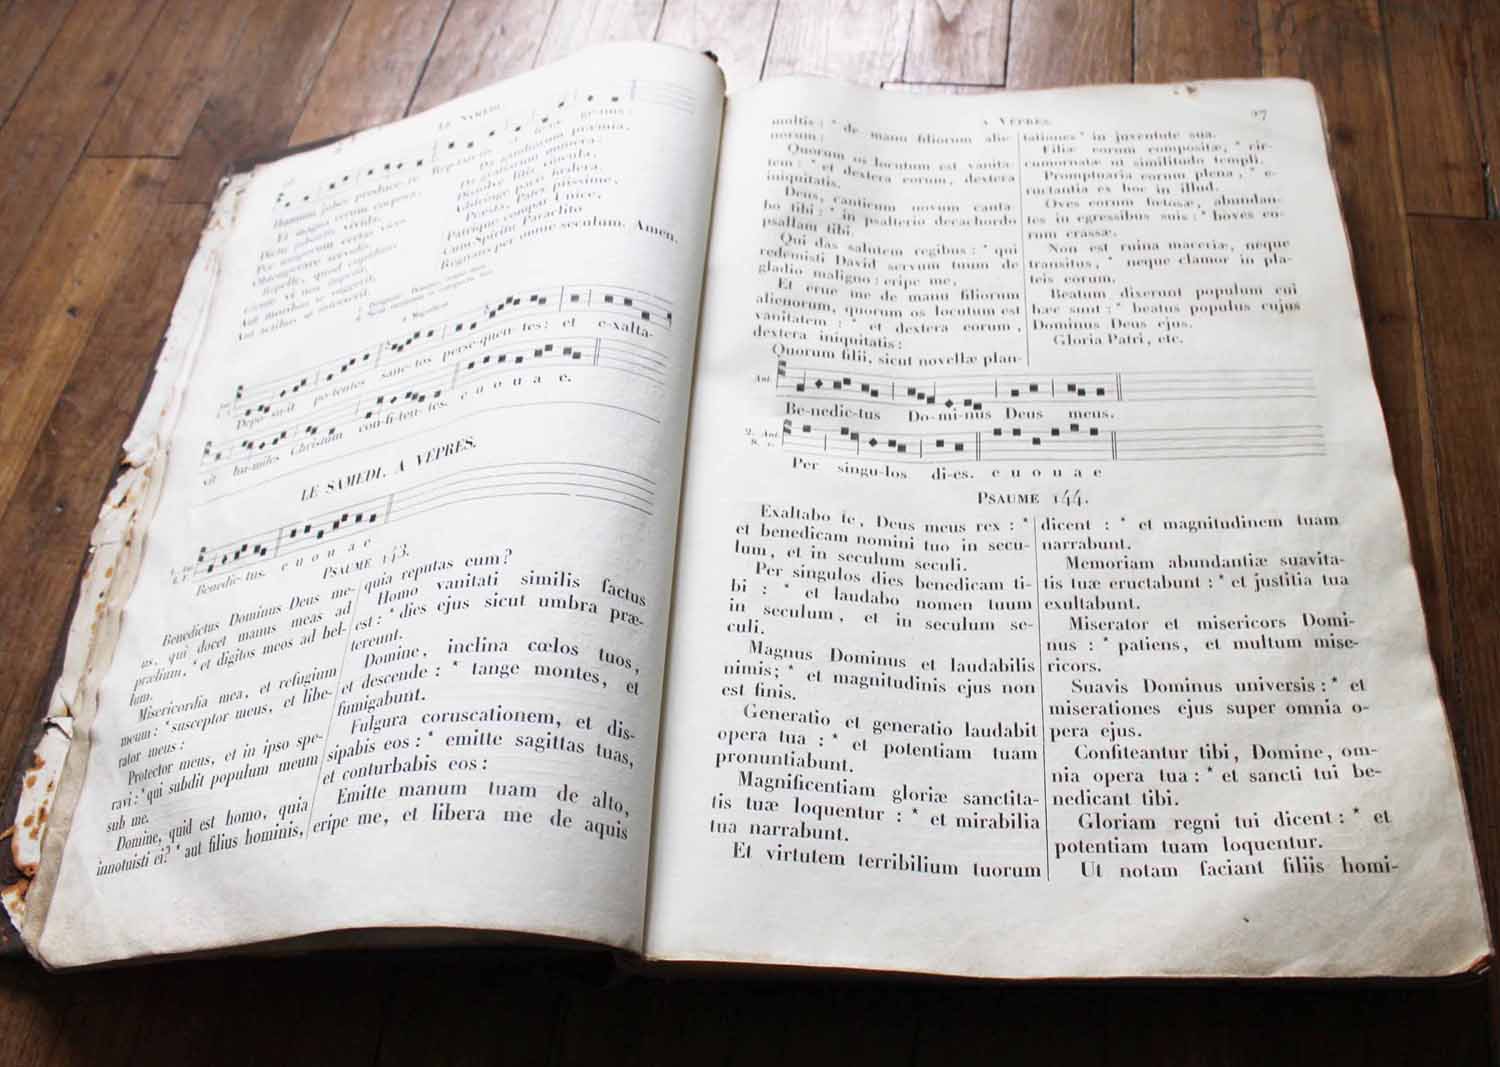 LE SAMEDI.
Humanum jubes producere
Et magna rerum corpora,
Repelle, quod cupidinis
genus :
præmia,
Da gratiarum munera:
Dissolve litis vincula,
Adstringe pacis fœdera.
Præsta, Pater piissime,
Patrique compar Unice,
Cum Spiritu Paraclito
Regnans per omne seculum. Amen.
à Magnificat
Deposuit po-tentes sanc-tos perse-quen-tes: et e-xalta-
vit hu-miles Christum con-fi-ten-tes. e u o u a e.
LE SAMEDI. A VÊPRES.
Benedic-tus. e u o u a e
PSAUME 143.
Benedictus Dominus Deus me-
us, qui docet manus meas ad
prælium, * et digitos meos ad bel-
lum.
Misericordia mea, et refugium
meum: * susceptor meus, et libe-
rator meus:
Protector meus, et in ipso spe-
ravi: * qui subdit populum meum
sub me.
Domine, quid est homo, quia
innotuisti ei? * aut filius hominis,
quia reputas eum?
Homo vanitati similis factus
est: * dies ejus sicut umbra præ-
tereunt.
Domine, inclina cœlos tuos,
et descende : * tange montes, et
fumigabunt.
Fulgura coruscationem, et dis-
sipabis eos : * emitte sagittas tuas,
et conturbabis eos :
Emitte manum tuam de alto,
eripe me, et libera me de aquis
A VÊPRES. 27
multis : * de manu filiorum alie-
norum :
Quorum os locutum est vanita-
tem : * et dextera eorum, dextera
iniquitatis.
Deus, canticum novum canta-
bo tibi : * in psalterio decachordo
psallam tibi.
Qui das salutem regibus : * qui
redemisti David servum tuum de
gladio maligno : eripe me,
Et erue me de manu filiorum
alienorum, quorum os locutum est
vanitatem : * et dextera eorum,
dextera iniquitatis :
Quorum filii, sicut novellæ plan-
tationes * in juventute sua.
Filiæ eorum compositæ, * cir-
cumornatæ ut similitudo templi.
Promptuaria eorum plena, * e-
ructantia ex hoc in illud.
Oves eorum fœtosæ, abundan-
tes in egressibus suis : * boves eo-
rum crassæ.
Non est ruina maceriæ, neque
transitus, * neque clamor in pla-
teis eorum.
Beatum dixerunt populum cui
hæc sunt : * beatus populus cujus
Dominus Deus ejus.
Gloria Patri, etc.
Ant.
Be-nedic-tus Do-mi-nus Deus meus.
2. Ant.
Per singu-los di-es. e u o u a e
PSAUME 144.
Exaltabo te, Deus meus rex : *
et benedicam nomini tuo in secu-
lum, et in seculum seculi.
Per singulos dies benedicam ti-
bi : * et laudabo nomen tuum
in seculum, et in seculum se-
culi.
Magnus Dominus et laudabilis
nimis; * et magnitudinis ejus non
est finis.
Generatio et generatio laudabit
opera tua : * et potentiam tuam
pronuntiabunt.
Magnificentiam gloriæ sanctita-
tis tuæ loquentur : * et mirabilia
tua narrabunt.
Et virtutem terribilium tuorum
dicent : * et magnitudinem tuam
narrabunt.
Memoriam abundantiæ suavita-
tis tuæ eructabunt : * et justitia tua
exultabunt.
Miserator et misericors Domi-
nus : * patiens, et multum mise-
ricors.
Suavis Dominus universis : * et
miserationes ejus super omnia o-
pera ejus.
Confiteantur tibi, Domine, om-
nia opera tua : * et sancti tui be-
nedicant tibi.
Gloriam regni tui dicent : * et
potentiam tuam loquentur.
Ut notam faciant filiis homi-